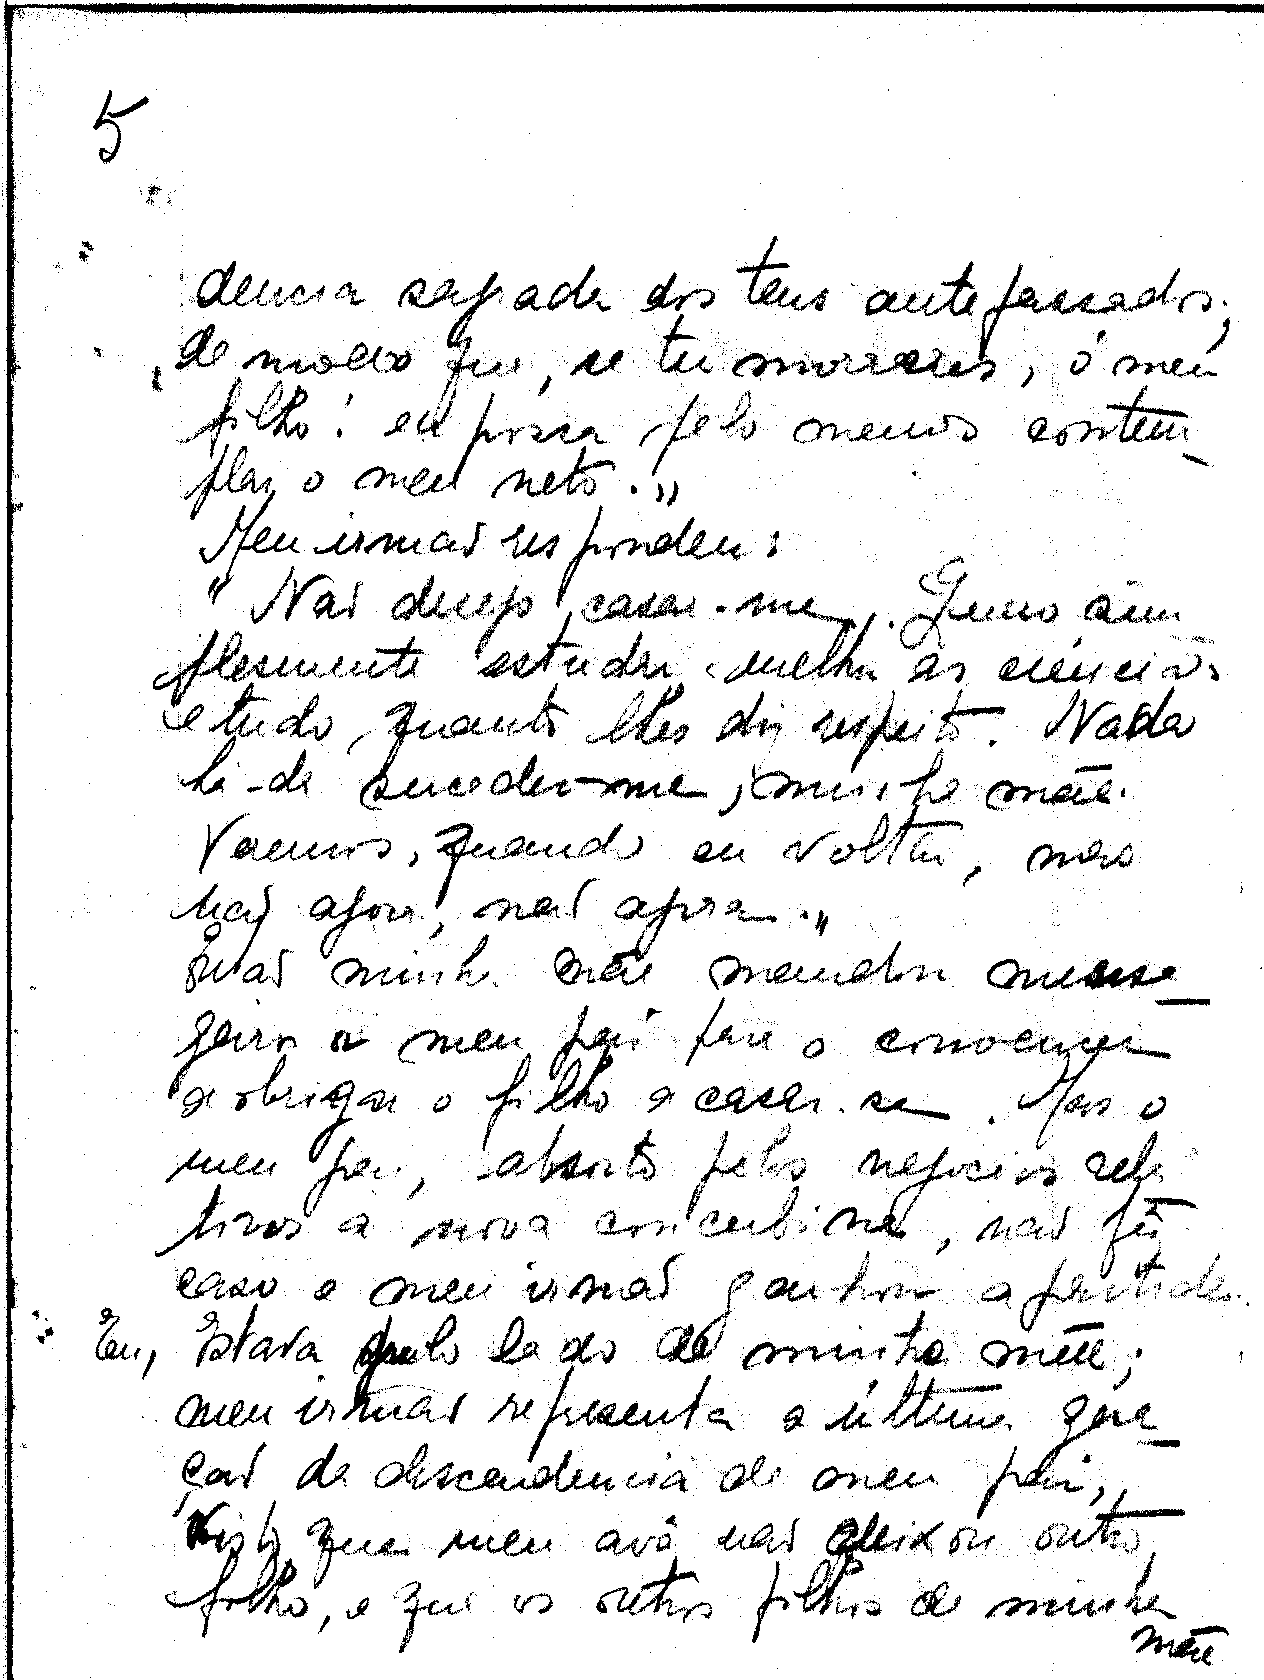 5
dencia sagrada dos teus antepassados;
de modo que, se tu morreres, ó meu
filho! eu possa pelo menos contem_
plar o meu neto."
Meu irmão respondeu:
"Não desejo casar-me. Quero sim
plesmente estudar melhor as ciências
e tudo quanto lhes diz respeito. Nada
há-de suceder-me, minha mãe.
Vaemos, quando eu voltar, mas
não agora, não agora."
Então minha mãe mandou mensa_
geiro a meu pai para o convencer
a obrigar o filho a casar-se. Mas o
meu pai, absorto pelos negocios rela
tivos a nova concubina, não fêz
caso e meu irmão ganhou a partida.
Eu, Estava pelo lado de minha mãe;
meu irmão representa a última gera_
ção da descendencia de meu pai,
visto que meu avô não deixou outro
filho, e que os outros filhos de minha
mãe